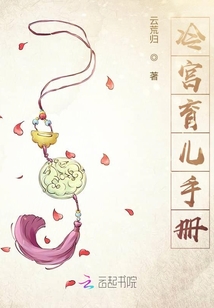 冷宫育儿手册
云荒归 ◎ 著
云起书院